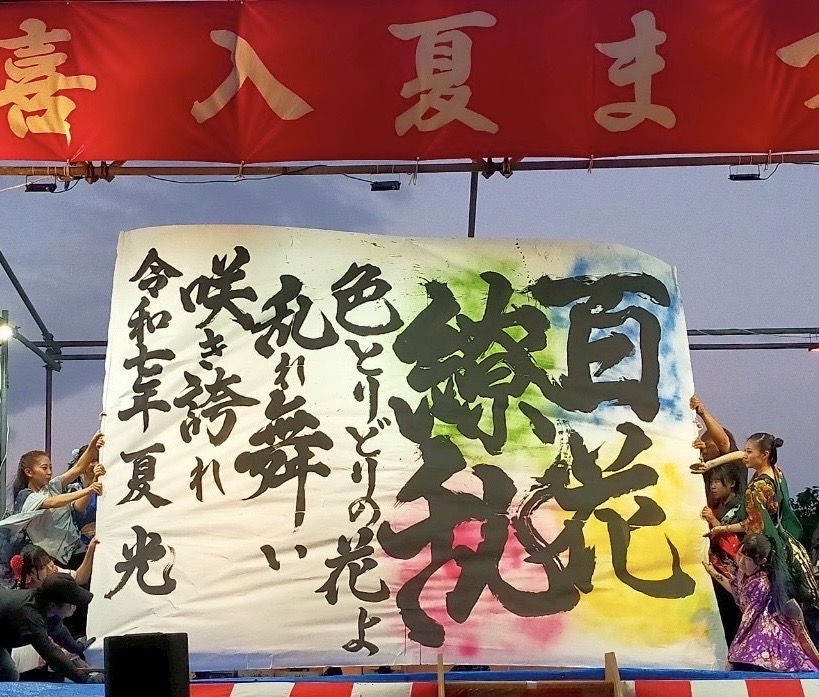 喜入夏ま
百花
繚乱
色とりどりの花よ
乱れ舞い
咲き誇れ
令和七年 夏 光